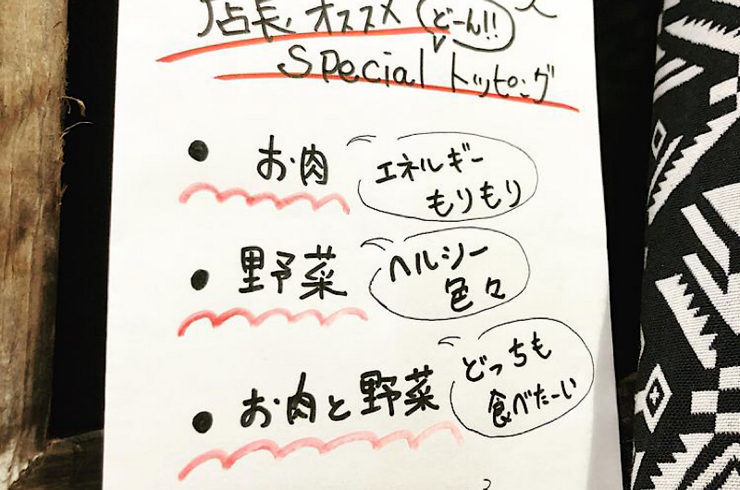 店長オススメ
どーん!!
Specialトッピング
• お肉
エネルギー
もりもり
• 野菜
ヘルシー
色々
• お肉と野菜
どっちも
食べたーい